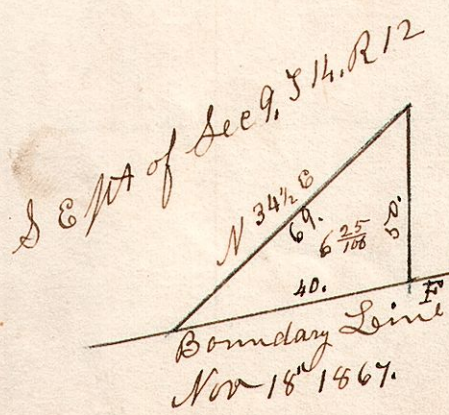 S E pt of Sec 9. T 14. R 12
N 34½ E
69.
6 25/100
50.
40.
F
Boundary Line
Nov 18" 1867.